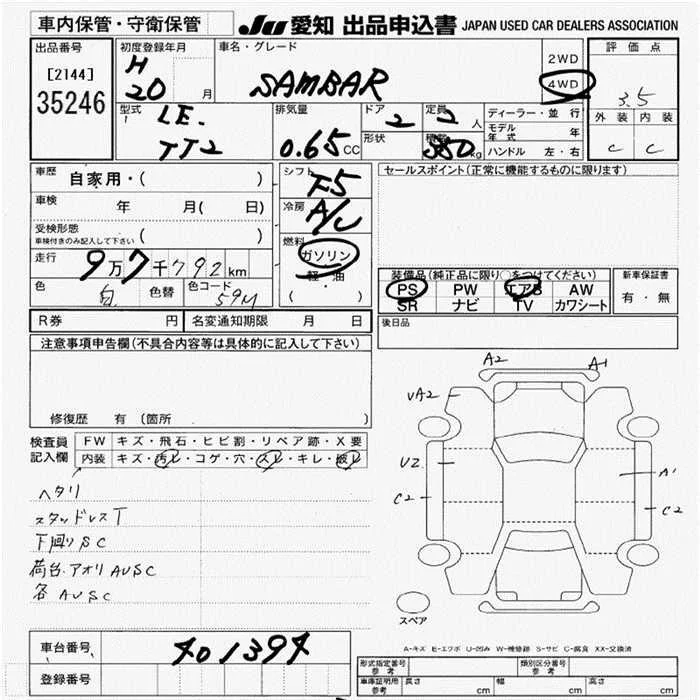 車内保管・守衛保管
JU 愛知 出品申込書 JAPAN USED CAR DEALERS ASSOCIATION
出品番号
[2144]
35246
初度登録年月
H
20 月
車名・グレード
SAMBAR
2WD
4WD
評価点
3.5
外装 内装
C C
型式
LE.
TT2
排気量
0.65 CC
ドア
2
定員
2 人
形状
積載
350 kg
ディーラー・並行
モデル年式 年
ハンドル 左・右
車歴
自家用・( )
車検
年 月( 日)
受検形態
車検付きのみ記入して下さい ( )
走行
9万7千792km
色
白
色替
色コード
59M
シフト
F5
冷房
A/C
燃料
ガソリン
軽・油
( ・ )
セールスポイント(正常に機能するものに限ります)
装備品(純正品に限り○をつけてください)
PS PW エアB AW
SR ナビ TV カワシート
新車保証書
有・無
R券 円 名変通知期限 月 日
後日品
注意事項申告欄(不具合内容等は具体的に記入して下さい)
修復歴 有 〔箇所 〕
検査員
記入欄
FW キズ・飛石・ヒビ割・リペア跡・X要
内装 キズ・汚レ・コゲ・穴・スレ・キレ・破レ
ヘタリ
スタッドレスT
下回りSC
荷台.アオリ AUSC
各 AUSC
A2 A1
UA2
U2
A1
C2
C2
スペア
A-キズ E-エクボ U-凹み W-補修跡 S-サビ C-腐食 XX-交換済
車台番号
401394
登録番号
形式指定番号
参考
類別区分番号
参考
車庫証明用
参考
長さ cm 幅 cm 高さ cm